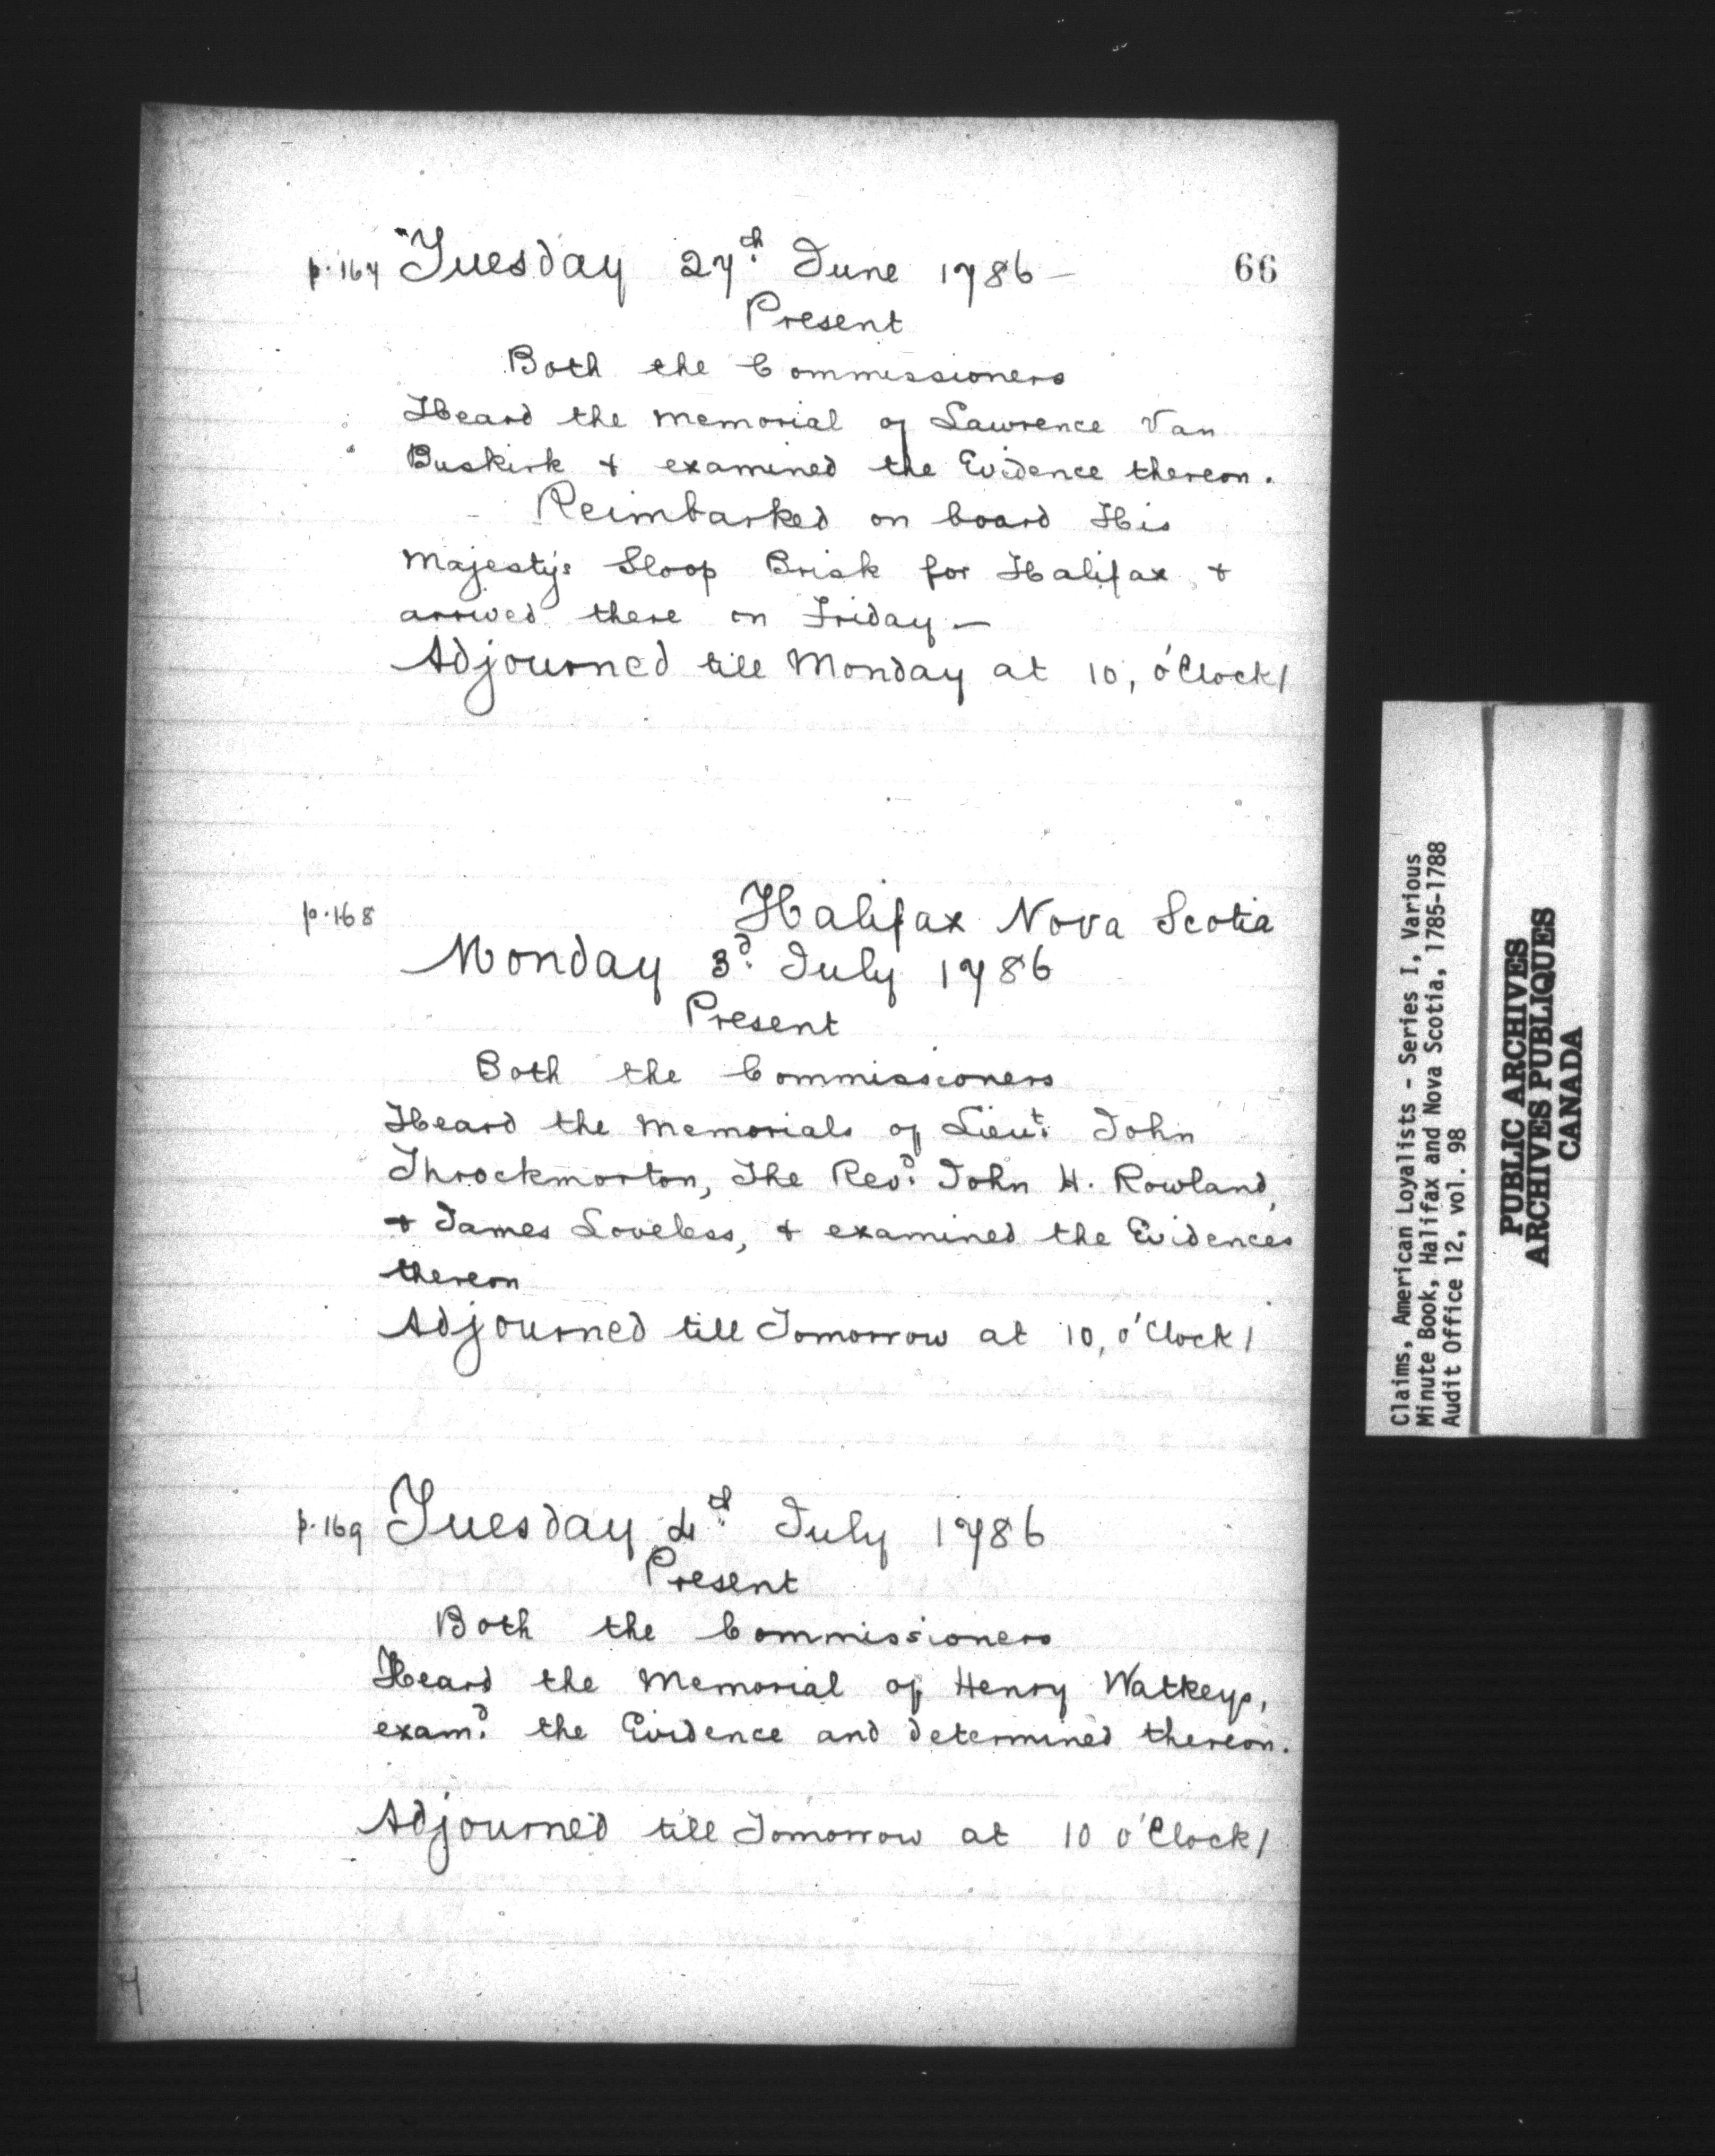 p.167 Tuesday 27th. June 1786 —
66
Present
Both the Commissioners
Heard the Memorial of Lawrence Van
Buskirk & examined the Evidence thereon.
Reimbarked on board His
Majesty's Sloop Brisk for Halifax, &
arrived there on Friday —
Adjourned till Monday at 10, o'Clock/
p.168
Halifax Nova Scotia
Monday 3d. July 1786
Present
Both the Commissioners
Heard the Memorials of Lieut. John
Throckmorton, The Revd. John H. Rowland,
& James Loveless, & examined the Evidences
thereon
Adjourned till Tomorrow at 10, o'Clock/
p.169 Tuesday 4th. July 1786
Present
Both the Commissioners
Heard the Memorial of Henry Watkeys,
examd. the Evidence and determined thereon.
Adjourned till Tomorrow at 10 o'Clock/
Claims, American Loyalists - Series I, Various
Minute Book, Halifax and Nova Scotia, 1785-1788
Audit Office 12, vol. 98
PUBLIC ARCHIVES
ARCHIVES PUBLIQUES
CANADA